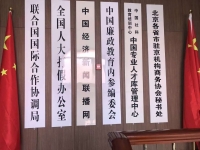 联合国国际合作协调局
全国人大打假办公室
中国经济新闻联播网
中国廉政教育内参编委会
中国社科
教育培训中心
中国专业人才库管理中心
北京各省市驻京机构商务协会秘书处